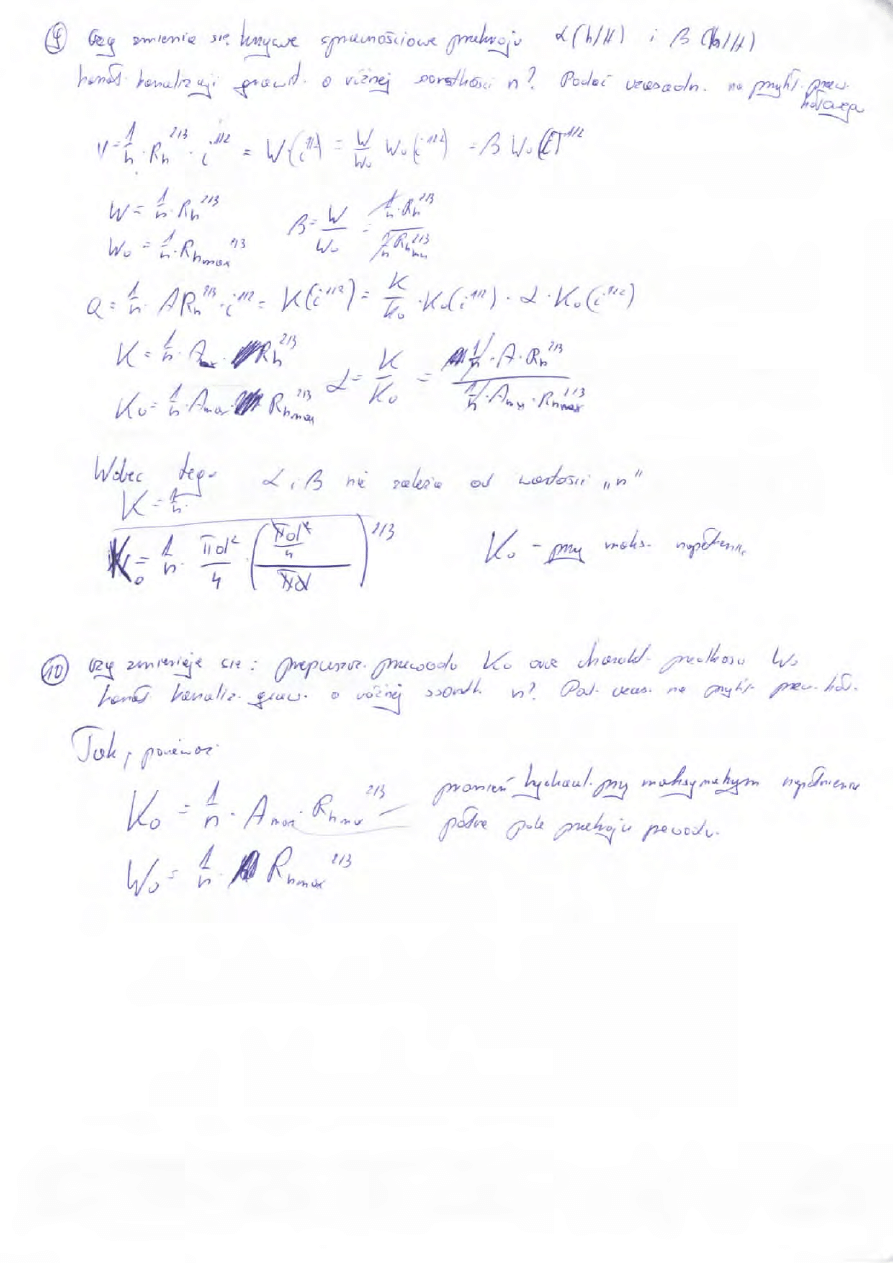 ⑨ Czy zmienia się krzywe sprawnościowe przekroju α(h/H) i β(h/H)
kanał. kanalizacji grawit. o różnej szorstkości n? Podać uzasadn. na przykł. przew.
kołowego
V = 1/n · Rh^2/3 · i^1/2 = W(i^1/2) = W/W₀ W₀(i^1/2) = β W₀(i)^1/2
W = 1/n · Rh^2/3
W₀ = 1/n · Rh max^2/3
β = W/W₀ = (1/n · Rh^2/3)/(1/n Rh max^2/3)
Q = 1/n · A Rh^2/3 · i^1/2 = K(i^1/2) = K/K₀ · K₀(i^1/2) · α · K₀(i^1/2)
K = 1/n · A · Rh^2/3
K₀ = 1/n · Amax · Rh max^2/3
α = K/K₀ = (1/n · A · Rh^2/3)/(1/n · Amax · Rh max^2/3)
Wobec tego α i β nie zależą od wartości „n"
K = 1/n ·
K₀ = 1/n · πd²/4 · ((πd²/4)/(πd))^2/3
K₀ - przy maks. napełnieniu
⑩ Czy zmieniają się: przepuszcz. przewodu K₀ oraz charakt. prędkości W₀
kanał kanaliz. graw. o różnej szorstk n? Pod. uzas. na przykł. przew. koł.
Tak, ponieważ
K₀ = 1/n · Amax · Rh max^2/3
promień hydraul. przy maksymalnym napełnieniu
pełne pole przekroju przewodu.
W₀ = 1/n · Rh max^2/3